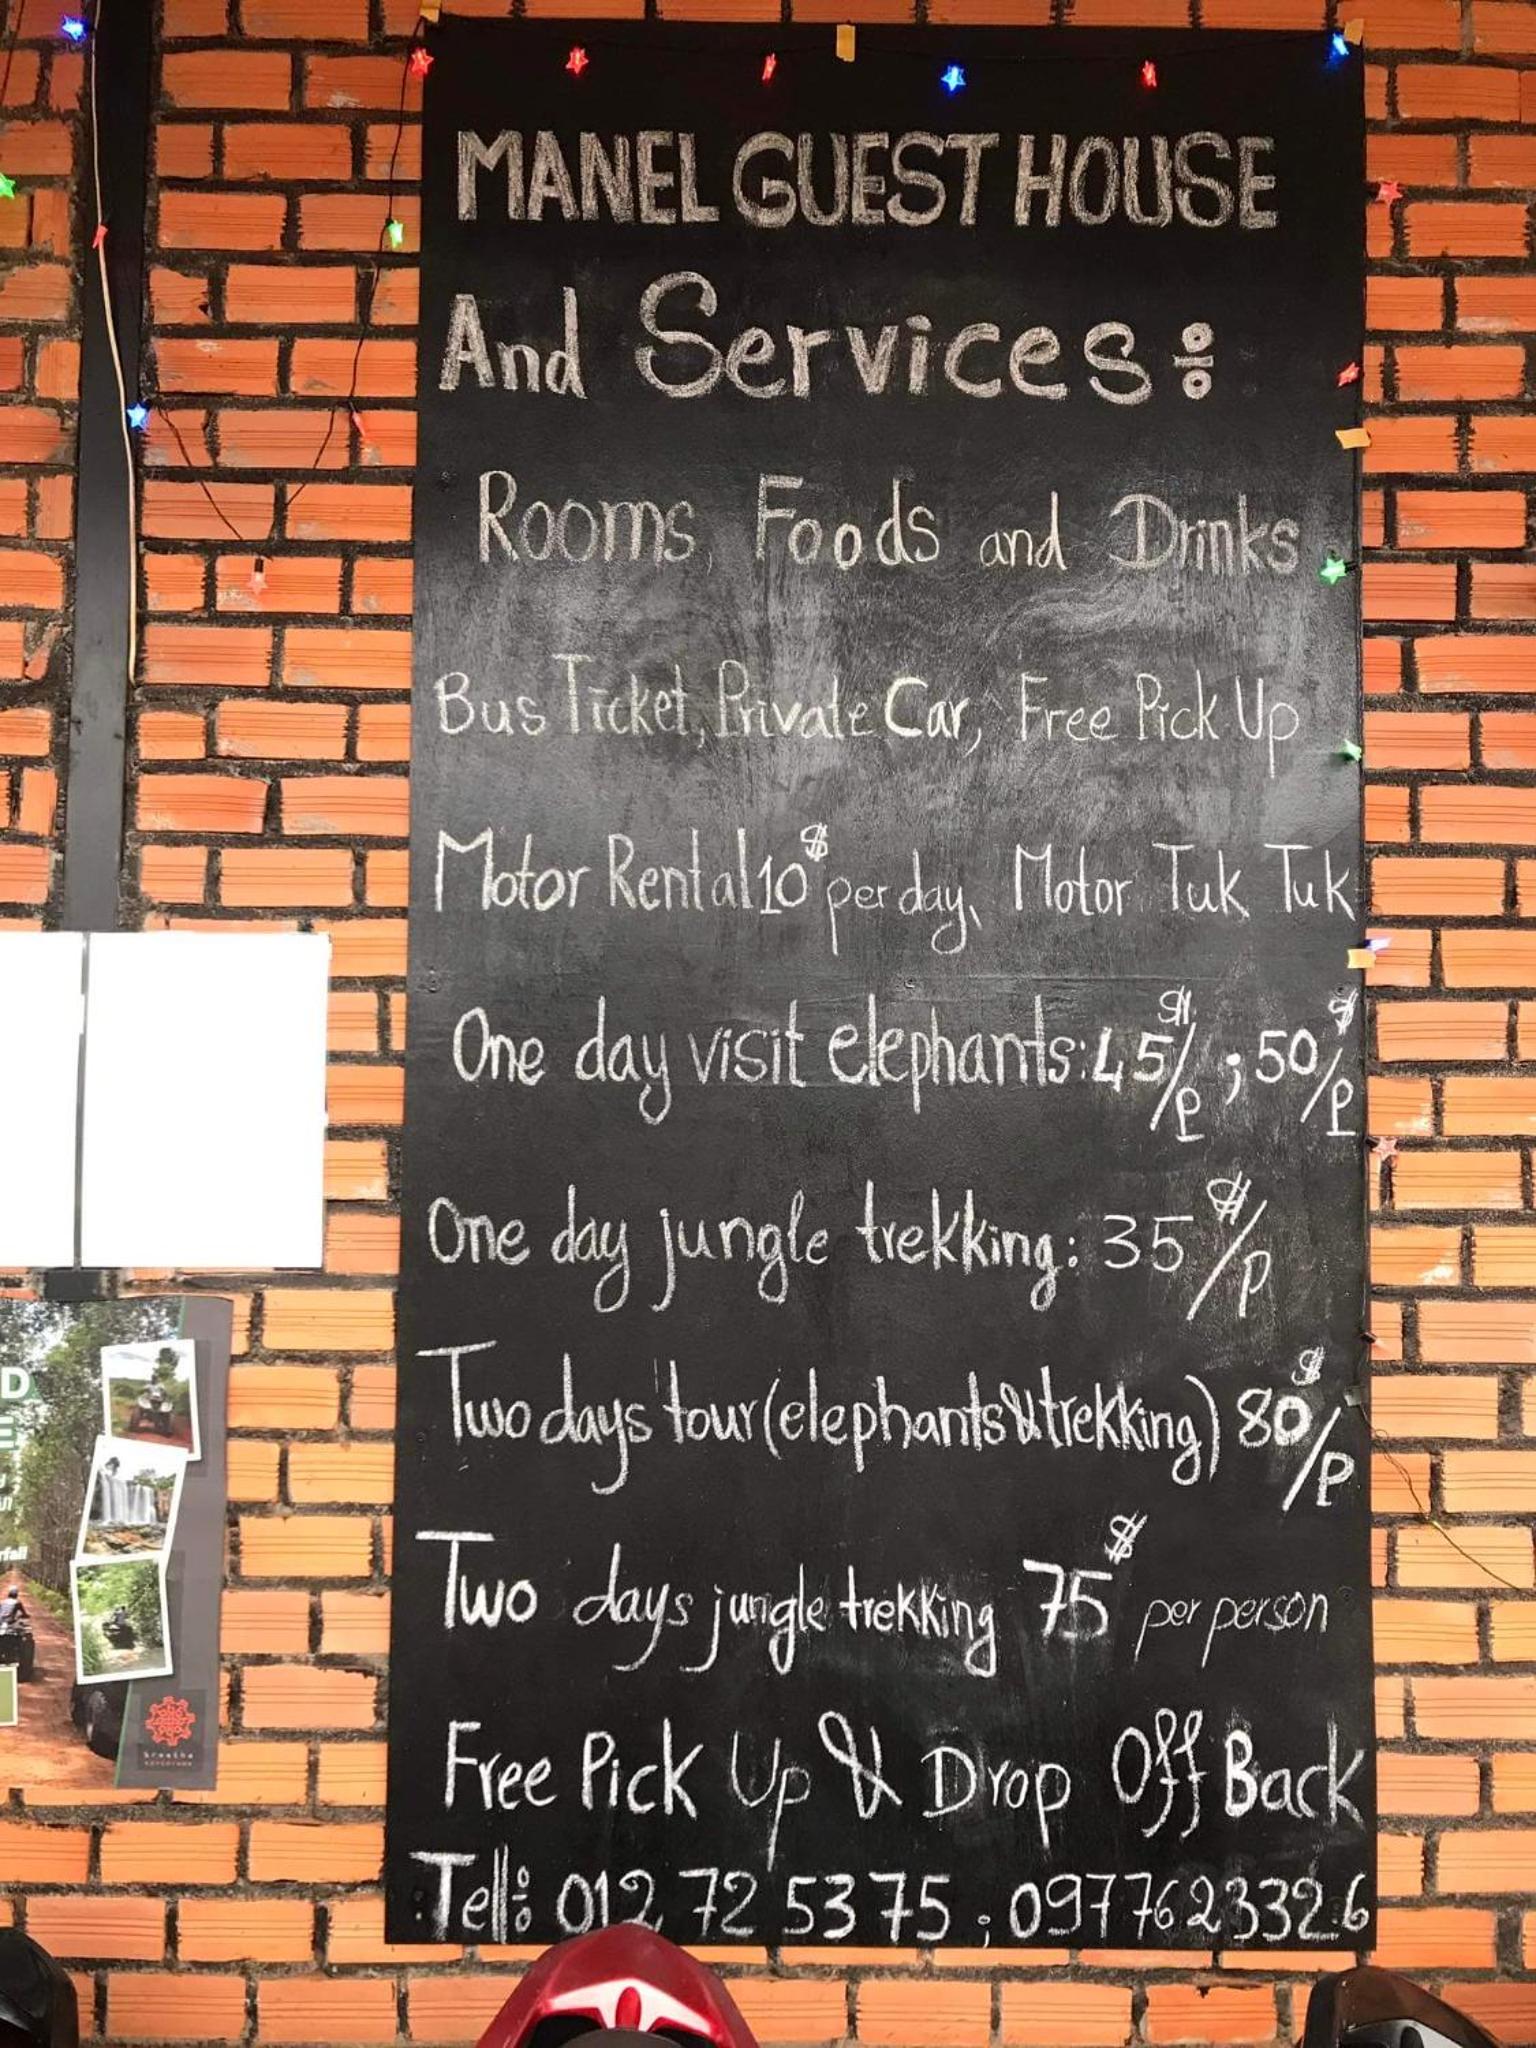 MANEL GUEST HOUSE
And Services:
Rooms, Foods and Drinks
Bus Ticket, Private Car, Free Pick Up
Motor Rental 10$ per day, Motor Tuk Tuk
One day visit elephants: 45$/p ; 50$/p
One day jungle trekking: 35$/p
Two days tour (elephants & trekking) 80$/p
Two days jungle trekking 75$ per person
Free Pick Up & Drop Off Back
Tell: 012 72 53 75 ; 0977623326
D
E
rfall
breathe